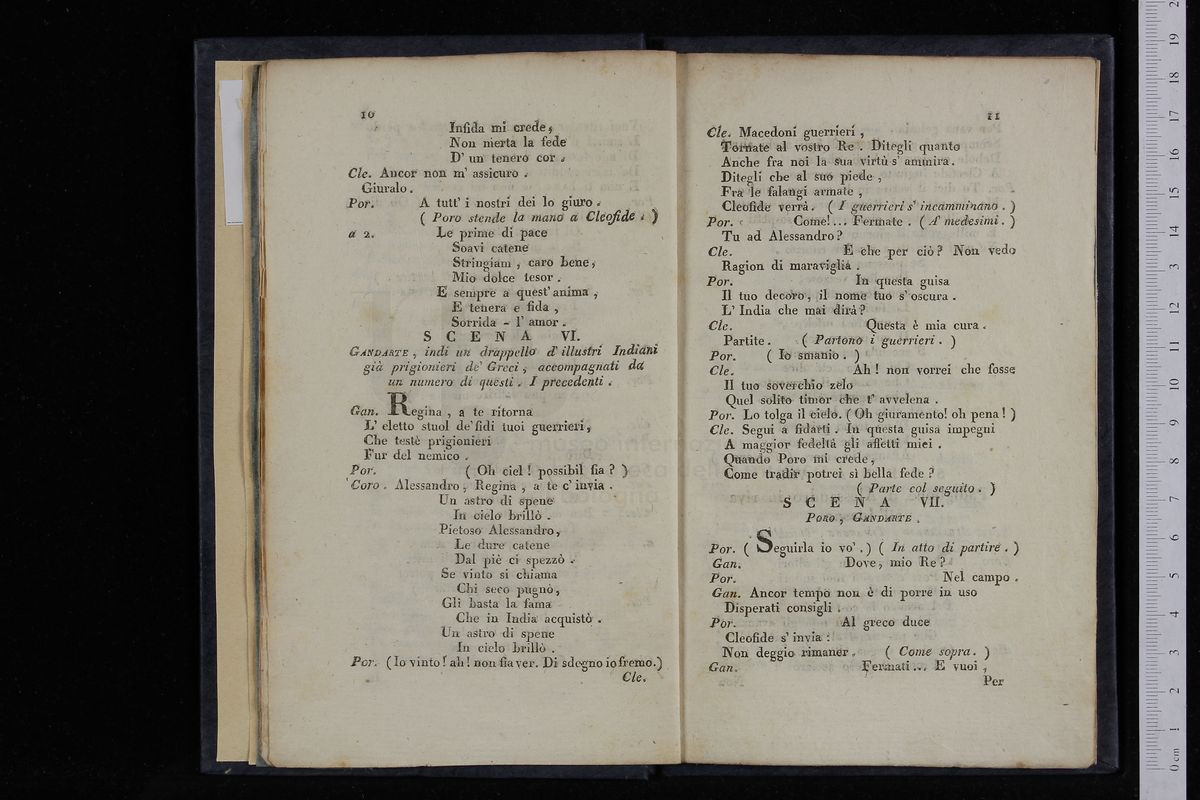 10
Infida mi crede,
Non merta la fede
D' un tenero cor .
Cle. Ancor non m' assicuro .
Giuralo .
Por. A tutt' i nostri dei lo giuro .
( Poro stende la mano a Cleofide . )
a 2. Le prime di pace
Soavi catene
Stringiam , caro bene,
Mio dolce tesor .
E sempre a quest' anima ,
E tenera e fida ,
Sorrida - l' amor .
S C E N A VI.
GANDARTE , indi un drappello d' illustri Indiani
già prigionieri de' Greci , accompagnati da
un numero di questi . I precedenti .
Gan. Regina , a te ritorna
L' eletto stuol de' fidi tuoi guerrieri,
Che testè prigionieri
Fur del nemico .
Por. ( Oh ciel ! possibil fia ? )
Coro . Alessandro , Regina , a te c' invia .
Un astro di spene
In cielo brillò .
Pietoso Alessandro,
Le dure catene
Dal piè ci spezzò .
Se vinto si chiama
Chi seco pugnò,
Gli basta la fama
Che in India acquistò .
Un astro di spene
In cielo brillò .
Por. (Io vinto! ah! non fia ver. Di sdegno io fremo.)
Cle.
11
Cle. Macedoni guerrieri ,
Tornate al vostro Re . Ditegli quanto
Anche fra noi la sua virtù s' ammira.
Ditegli che al suo piede ,
Fra le falangi armate ,
Cleofide verrà. ( I guerrieri s' incamminano . )
Por. Come!... Fermate . ( A' medesimi. )
Tu ad Alessandro?
Cle. E che per ciò? Non vedo
Ragion di maraviglia .
Por. In questa guisa
Il tuo decoro, il nome tuo s' oscura .
L' India che mai dirà?
Cle. Questa è mia cura .
Partite . ( Partono i guerrieri . )
Por. ( Io smanio . )
Cle. Ah ! non vorrei che fosse
Il tuo soverchio zelo
Quel solito timor che t' avvelena .
Por. Lo tolga il cielo. ( Oh giuramento! oh pena! )
Cle. Segui a fidarti . In questa guisa impegni
A maggior fedeltà gli affetti miei .
Quando Poro mi crede,
Come tradir potrei sì bella fede ?
( Parte col seguito . )
S C E N A VII.
PORO , GANDARTE .
Por. ( Seguirla io vo' . ) ( In atto di partire . )
Gan. Dove, mio Re ?
Por. Nel campo .
Gan. Ancor tempo non è di porre in uso
Disperati consigli .
Por. Al greco duce
Cleofide s' invia :
Non deggio rimaner . ( Come sopra. )
Gan. Fermati... E vuoi ,
Per
0 cm 1 2 3 4 5 6 7 8 9 10 11 12 13 14 15 16 17 18 19 2